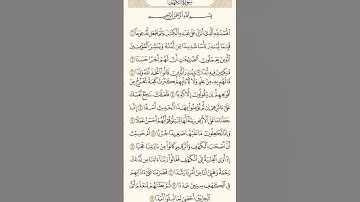 سُورَةُ الكَهْفِ
بِسْمِ ٱللَّهِ ٱلرَّحْمَٰنِ ٱلرَّحِيمِ
ٱلْحَمْدُ لِلَّهِ ٱلَّذِىٓ أَنزَلَ عَلَىٰ عَبْدِهِ ٱلْكِتَٰبَ وَلَمْ يَجْعَل لَّهُۥ عِوَجَا ۜ ١
قَيِّمًا لِّيُنذِرَ بَأْسًا شَدِيدًا مِّن لَّدُنْهُ وَيُبَشِّرَ ٱلْمُؤْمِنِينَ
ٱلَّذِينَ يَعْمَلُونَ ٱلصَّٰلِحَٰتِ أَنَّ لَهُمْ أَجْرًا حَسَنًا ٢
مَّٰكِثِينَ فِيهِ أَبَدًا ٣ وَيُنذِرَ ٱلَّذِينَ قَالُوا۟ ٱتَّخَذَ ٱللَّهُ وَلَدًا ٤
مَّا لَهُم بِهِۦ مِنْ عِلْمٍ وَلَا لِءَابَآئِهِمْ ۚ كَبُرَتْ كَلِمَةً تَخْرُجُ مِنْ
أَفْوَٰهِهِمْ ۚ إِن يَقُولُونَ إِلَّا كَذِبًا ٥ فَلَعَلَّكَ بَٰخِعٌ نَّفْسَكَ
عَلَىٰٓ ءَاثَٰرِهِمْ إِن لَّمْ يُؤْمِنُوا۟ بِهَٰذَا ٱلْحَدِيثِ أَسَفًا ٦ إِنَّا
جَعَلْنَا مَا عَلَى ٱلْأَرْضِ زِينَةً لَّهَا لِنَبْلُوَهُمْ أَيُّهُمْ أَحْسَنُ عَمَلًا ٧
وَإِنَّا لَجَٰعِلُونَ مَا عَلَيْهَا صَعِيدًا جُرُزًا ٨ أَمْ حَسِبْتَ
أَنَّ أَصْحَٰبَ ٱلْكَهْفِ وَٱلرَّقِيمِ كَانُوا۟ مِنْ ءَايَٰتِنَا عَجَبًا ٩
إِذْ أَوَى ٱلْفِتْيَةُ إِلَى ٱلْكَهْفِ فَقَالُوا۟ رَبَّنَآ ءَاتِنَا مِن لَّدُنكَ
رَحْمَةً وَهَيِّئْ لَنَا مِنْ أَمْرِنَا رَشَدًا ١٠ فَضَرَبْنَا عَلَىٰٓ ءَاذَانِهِمْ
فِى ٱلْكَهْفِ سِنِينَ عَدَدًا ١١ ثُمَّ بَعَثْنَٰهُمْ لِنَعْلَمَ أَىُّ
ٱلْحِزْبَيْنِ أَحْصَىٰ لِمَا لَبِثُوٓا۟ أَمَدًا ١٢